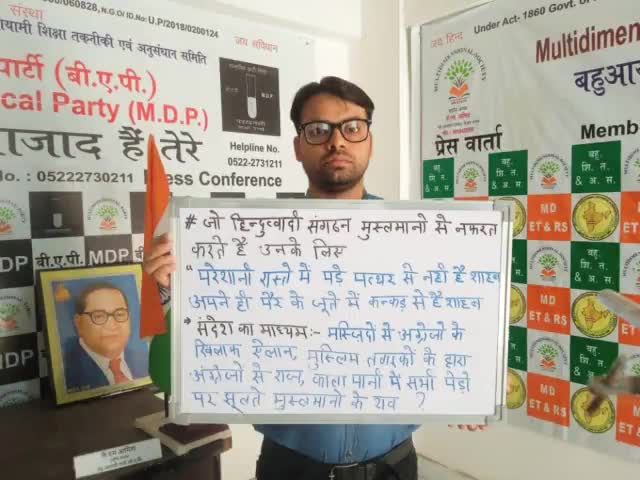 060828, N.G.O/ID.No: U.P/2018/0200124
संस्था
जय संविधान
आयामी शिक्षा तकनीकी एवं अनुसंधान समिति
पार्टी (बी.ए.पी.)
cal Party (M.D.P.)
MDP
जाद हैं तेरे
Helpline No.
0522-2731211
No. : 05222730211
Press Conference
Under Act- 1860 Govt. of
जय हिन्द
MULTIDIMENSIONAL SOCIETY
Multidimen
बहुआ
प्रेस वार्ता
Membe
बहु.
शि. त.
& अ. स.
MD
ET & RS
MDP
बी.ए.पी.
# जो हिन्दुत्वादी संगठन मुस्लमानो से नफरत
करते हैं उनके लिस
" परेशानी रास्ते में पड़े पत्थर से नही है साहब
अपने ही पैर के जूते में कन्कड़ से है साहब
* संदेश का माध्यम:- मस्जिदों से अंग्रेजो के
खिलाफ ऐलान, मुस्लिम के द्वारा
अंग्रेजो से, काला पानी में सभी पेड़ो
पर झूलते मुस्लमानो के शव ?